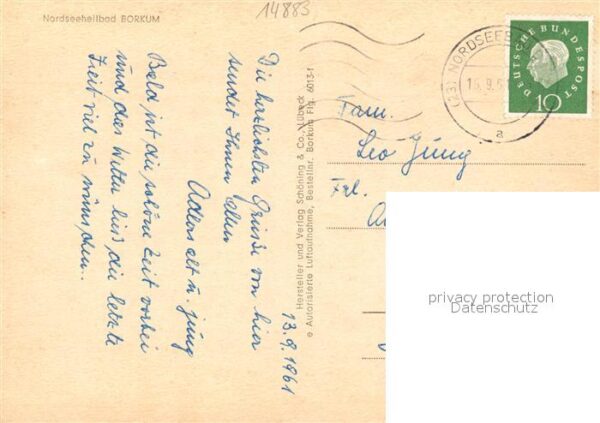 Nordseeheilbad BORKUM
14883
Die herzlichsten Grüsse von hier
sendet Ihnen allen
Adlers alt u. jung
Bald ist die schöne Zeit vorbei
und das Wetter ließ die letzte
Zeit viel zu wünschen..
13.9.1961
Hersteller und Verlag Schöning & Co., Lübeck
Autorisierte Luftaufnahme, Bestellnr. Borkum Flg. 6013-1
(23) NORDSEEB
15.9.
a
DEUTSCHE BUNDESPOST
10
Fam.
Leo Jung
privacy protection
Datenschutz